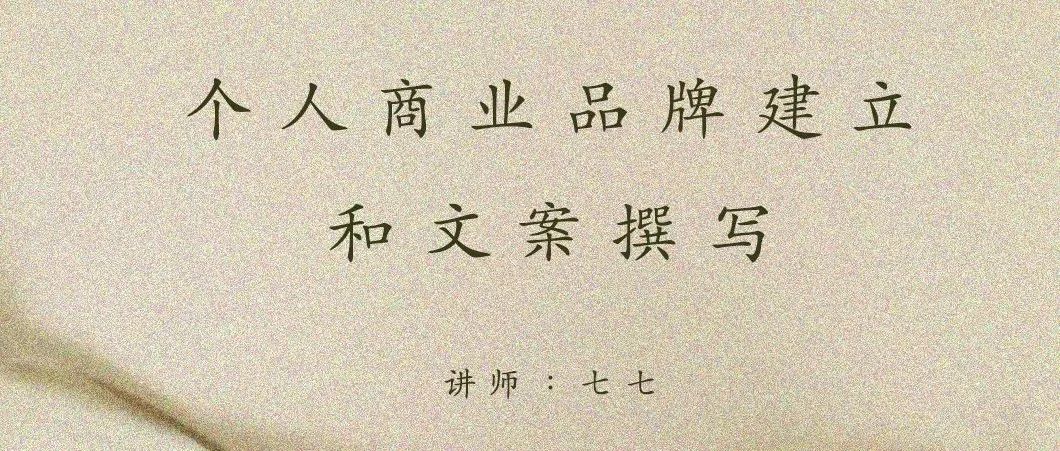 个人商业品牌建立
和文案撰写
讲师：七七